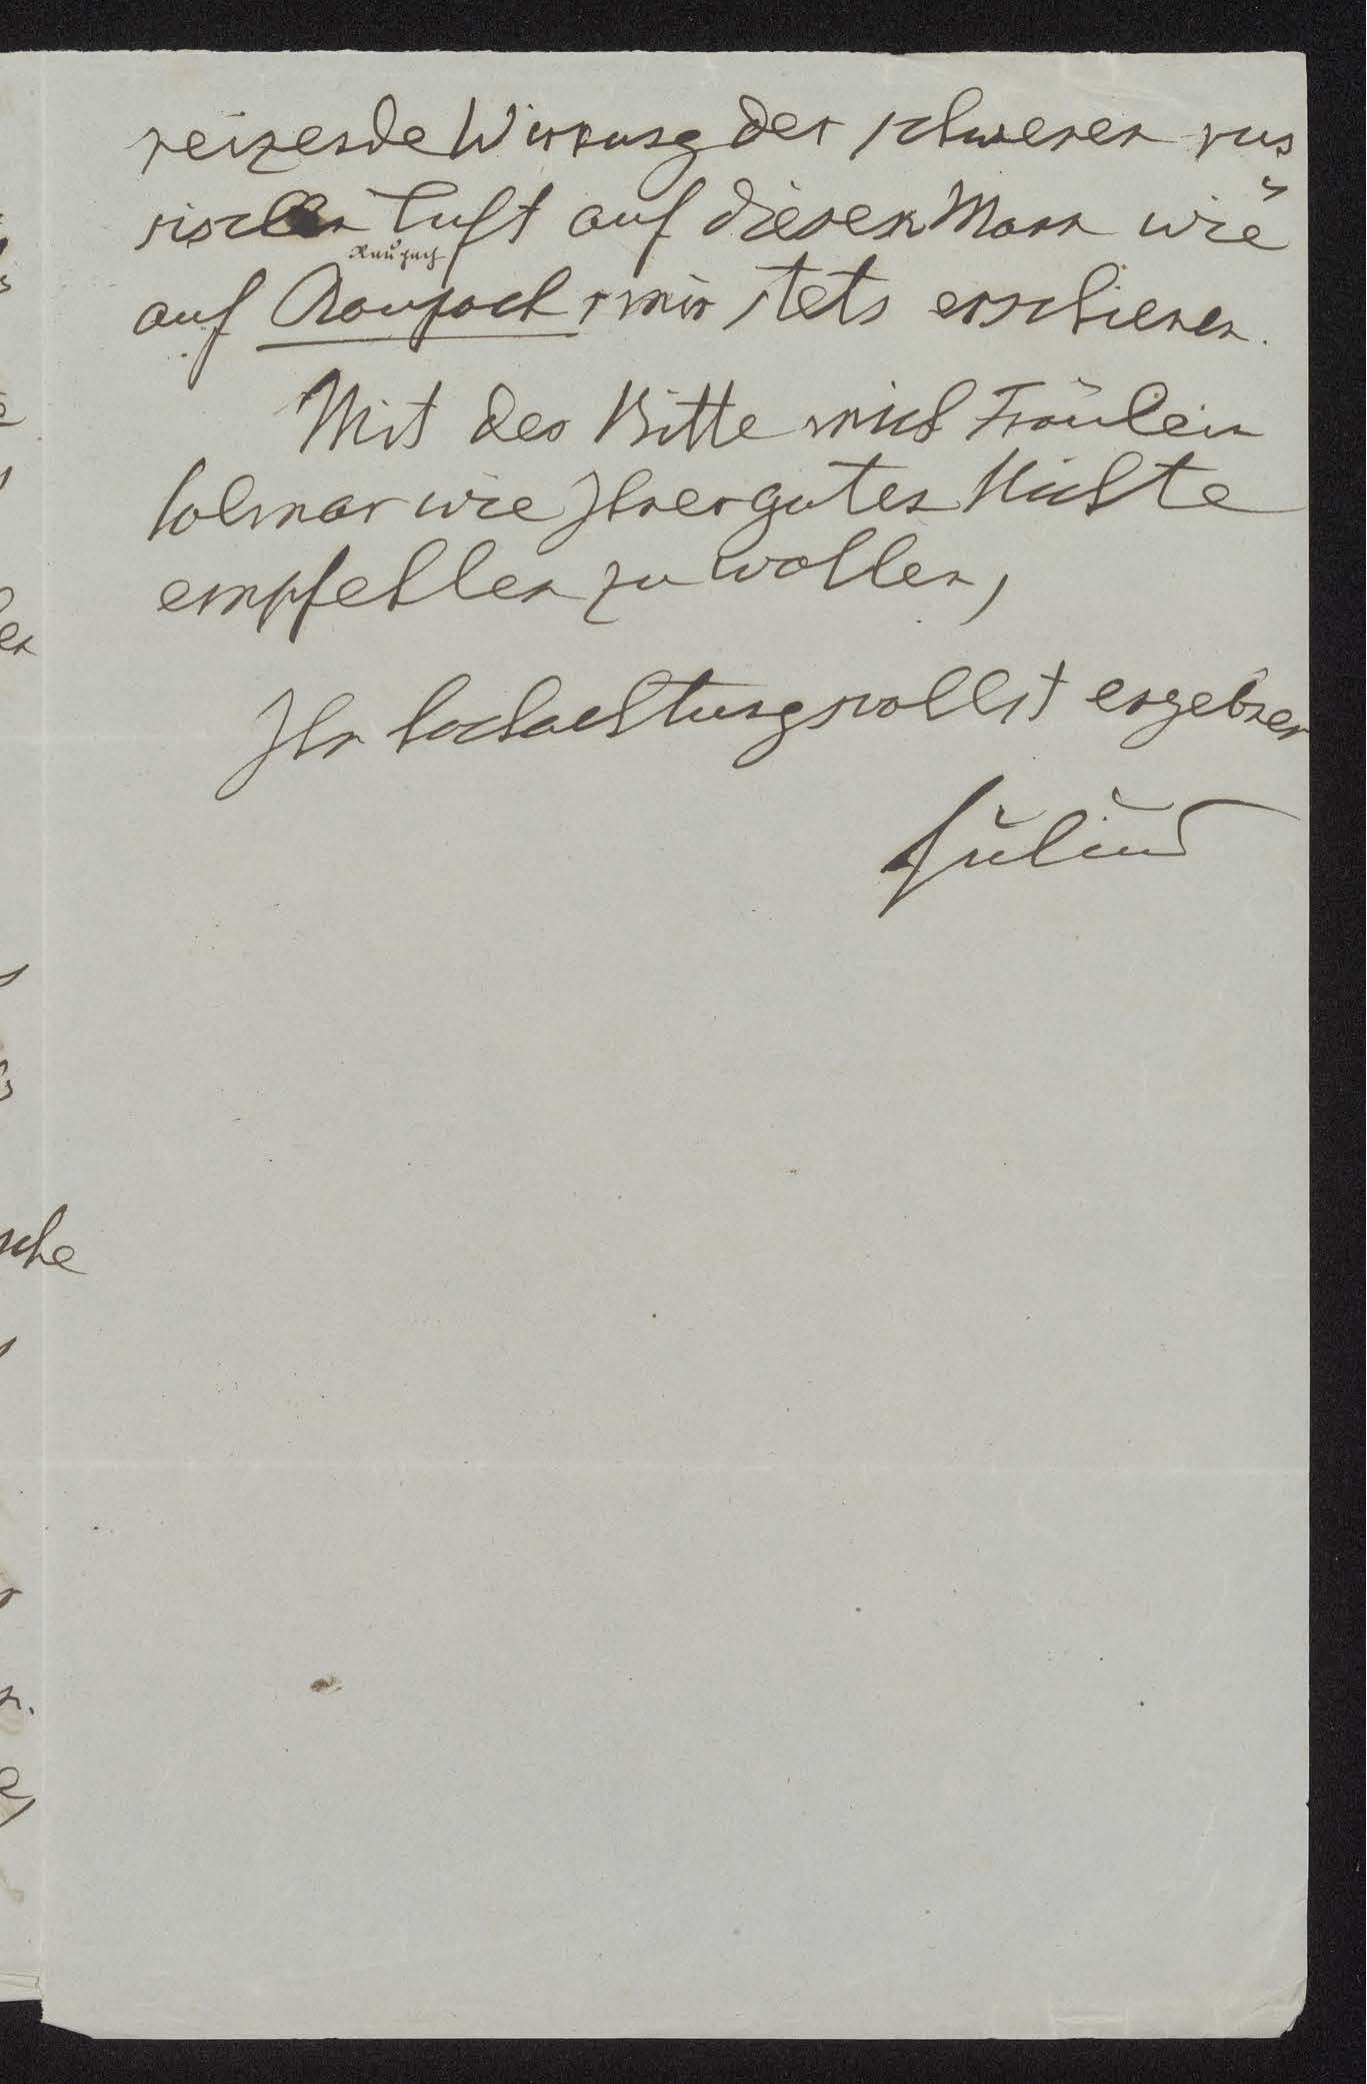 reizende Wirkung der schweren rus
sischen Luft auf diesen Mann wie
Raupach
auf Raupach mir stets erschienen.
Mit der Bitte mich Fräulein
Solmar wie Ihrer guten Nichte
empfehlen zu wollen,
Ihr hochachtungsvollst ergebner
Julius